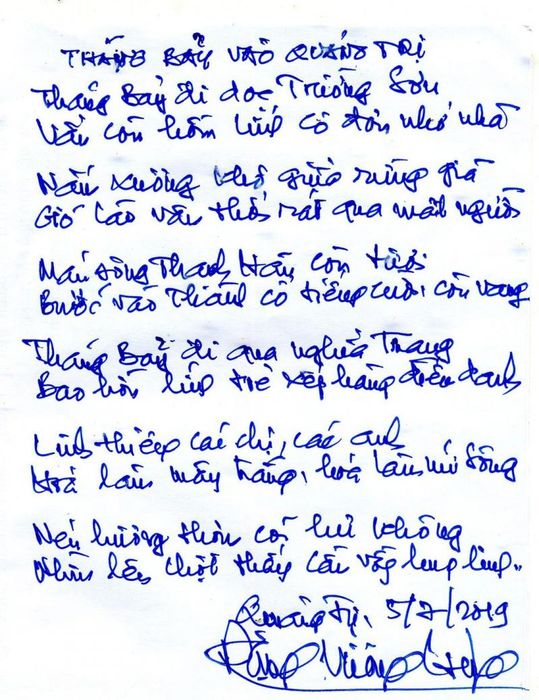 THÁNG BẢY VÀO QUẢNG TRỊ
Tháng Bảy đi dọc Trường Sơn
Vẫn còn hồn lính cô đơn nhớ nhà
Nấm xương khô giữa rừng già
Gió Lào vẫn thổi rát qua mặt người
Máu sông Thạch Hãn còn tươi
Bước vào Thành cổ tiếng cười còn vang
Tháng Bảy đi qua nghĩa Trang
Bao hồn lính trẻ xếp hàng điểm danh
Linh thiêng các chị, các anh
Hoá làm mây trắng, hoá làm núi sông
Nén hương thơm có hư không
Nhìn lên chợt thấy cầu vồng lung linh..
Quảng Trị, 5/7/2019